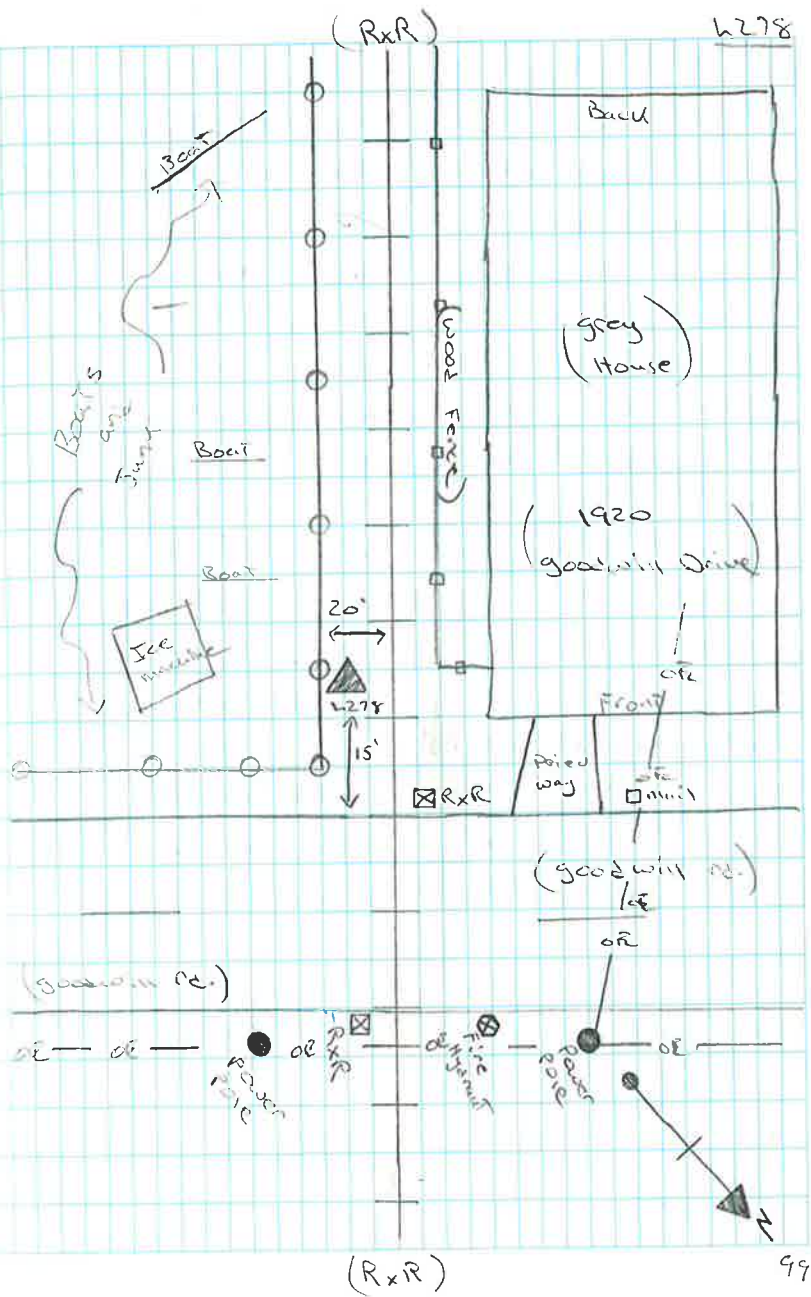 (RxR)
h278
Boat
Back
(grey
House)
(Wood Fence)
Boats
and
Boat
(1920
goodwill Drive)
Boat
20'
Ice
machine
OE
h278
Front
15'
way
OE
RxR
mail
(goodwill rd.)
OE
OE
(goodwill rd.)
OE
OE
Power
Pole
OE
RxR
OE
Fire
Hydrant
Power
Pole
OE
N
(RxR)
99